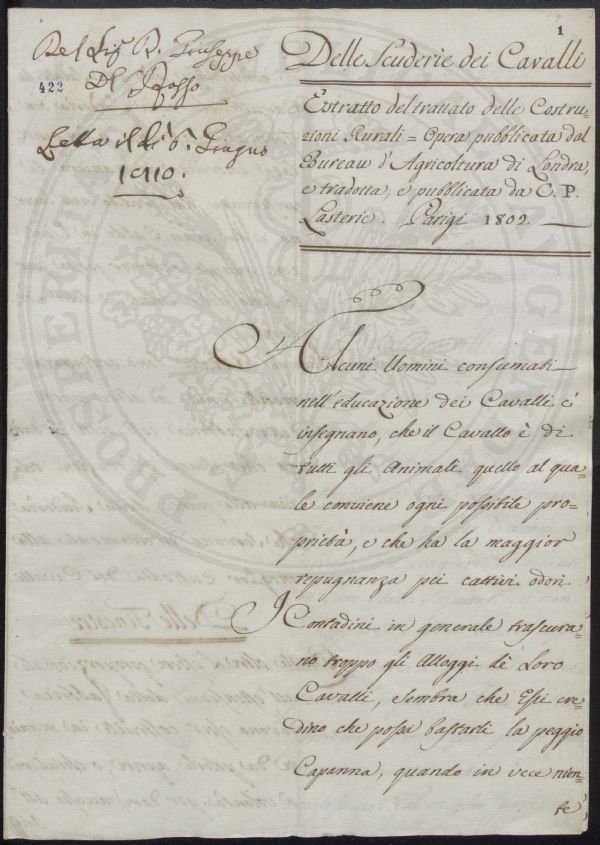 1
Del Sig. D. Giuseppe
Del Rosso
422
Letta il dì 6. Giugno
1810.
Delle Scuderie dei Cavalli
Estratto del trattato delle Costru=
zioni Rurali = Opera pubblicata dal
Bureau d'Agricoltura di Londra,
e tradotta, e pubblicata da C. P.
Lasterie. Parigi 1802.
Alcuni Uomini consumati
nell'educazione dei Cavalli c'
insegnano, che il Cavallo è di
tutti gli Animali quello al qua=
le conviene ogni possibile pro=
prietà, e che ha la maggior
repugnanza pei cattivi odori.
I Contadini in generale trascura=
no troppo gli Alloggi de Loro
Cavalli, Sembra che Essi cre=
dino che possa bastarli la peggio
Capanna, quando in vece nien=
te
Delle Finestre